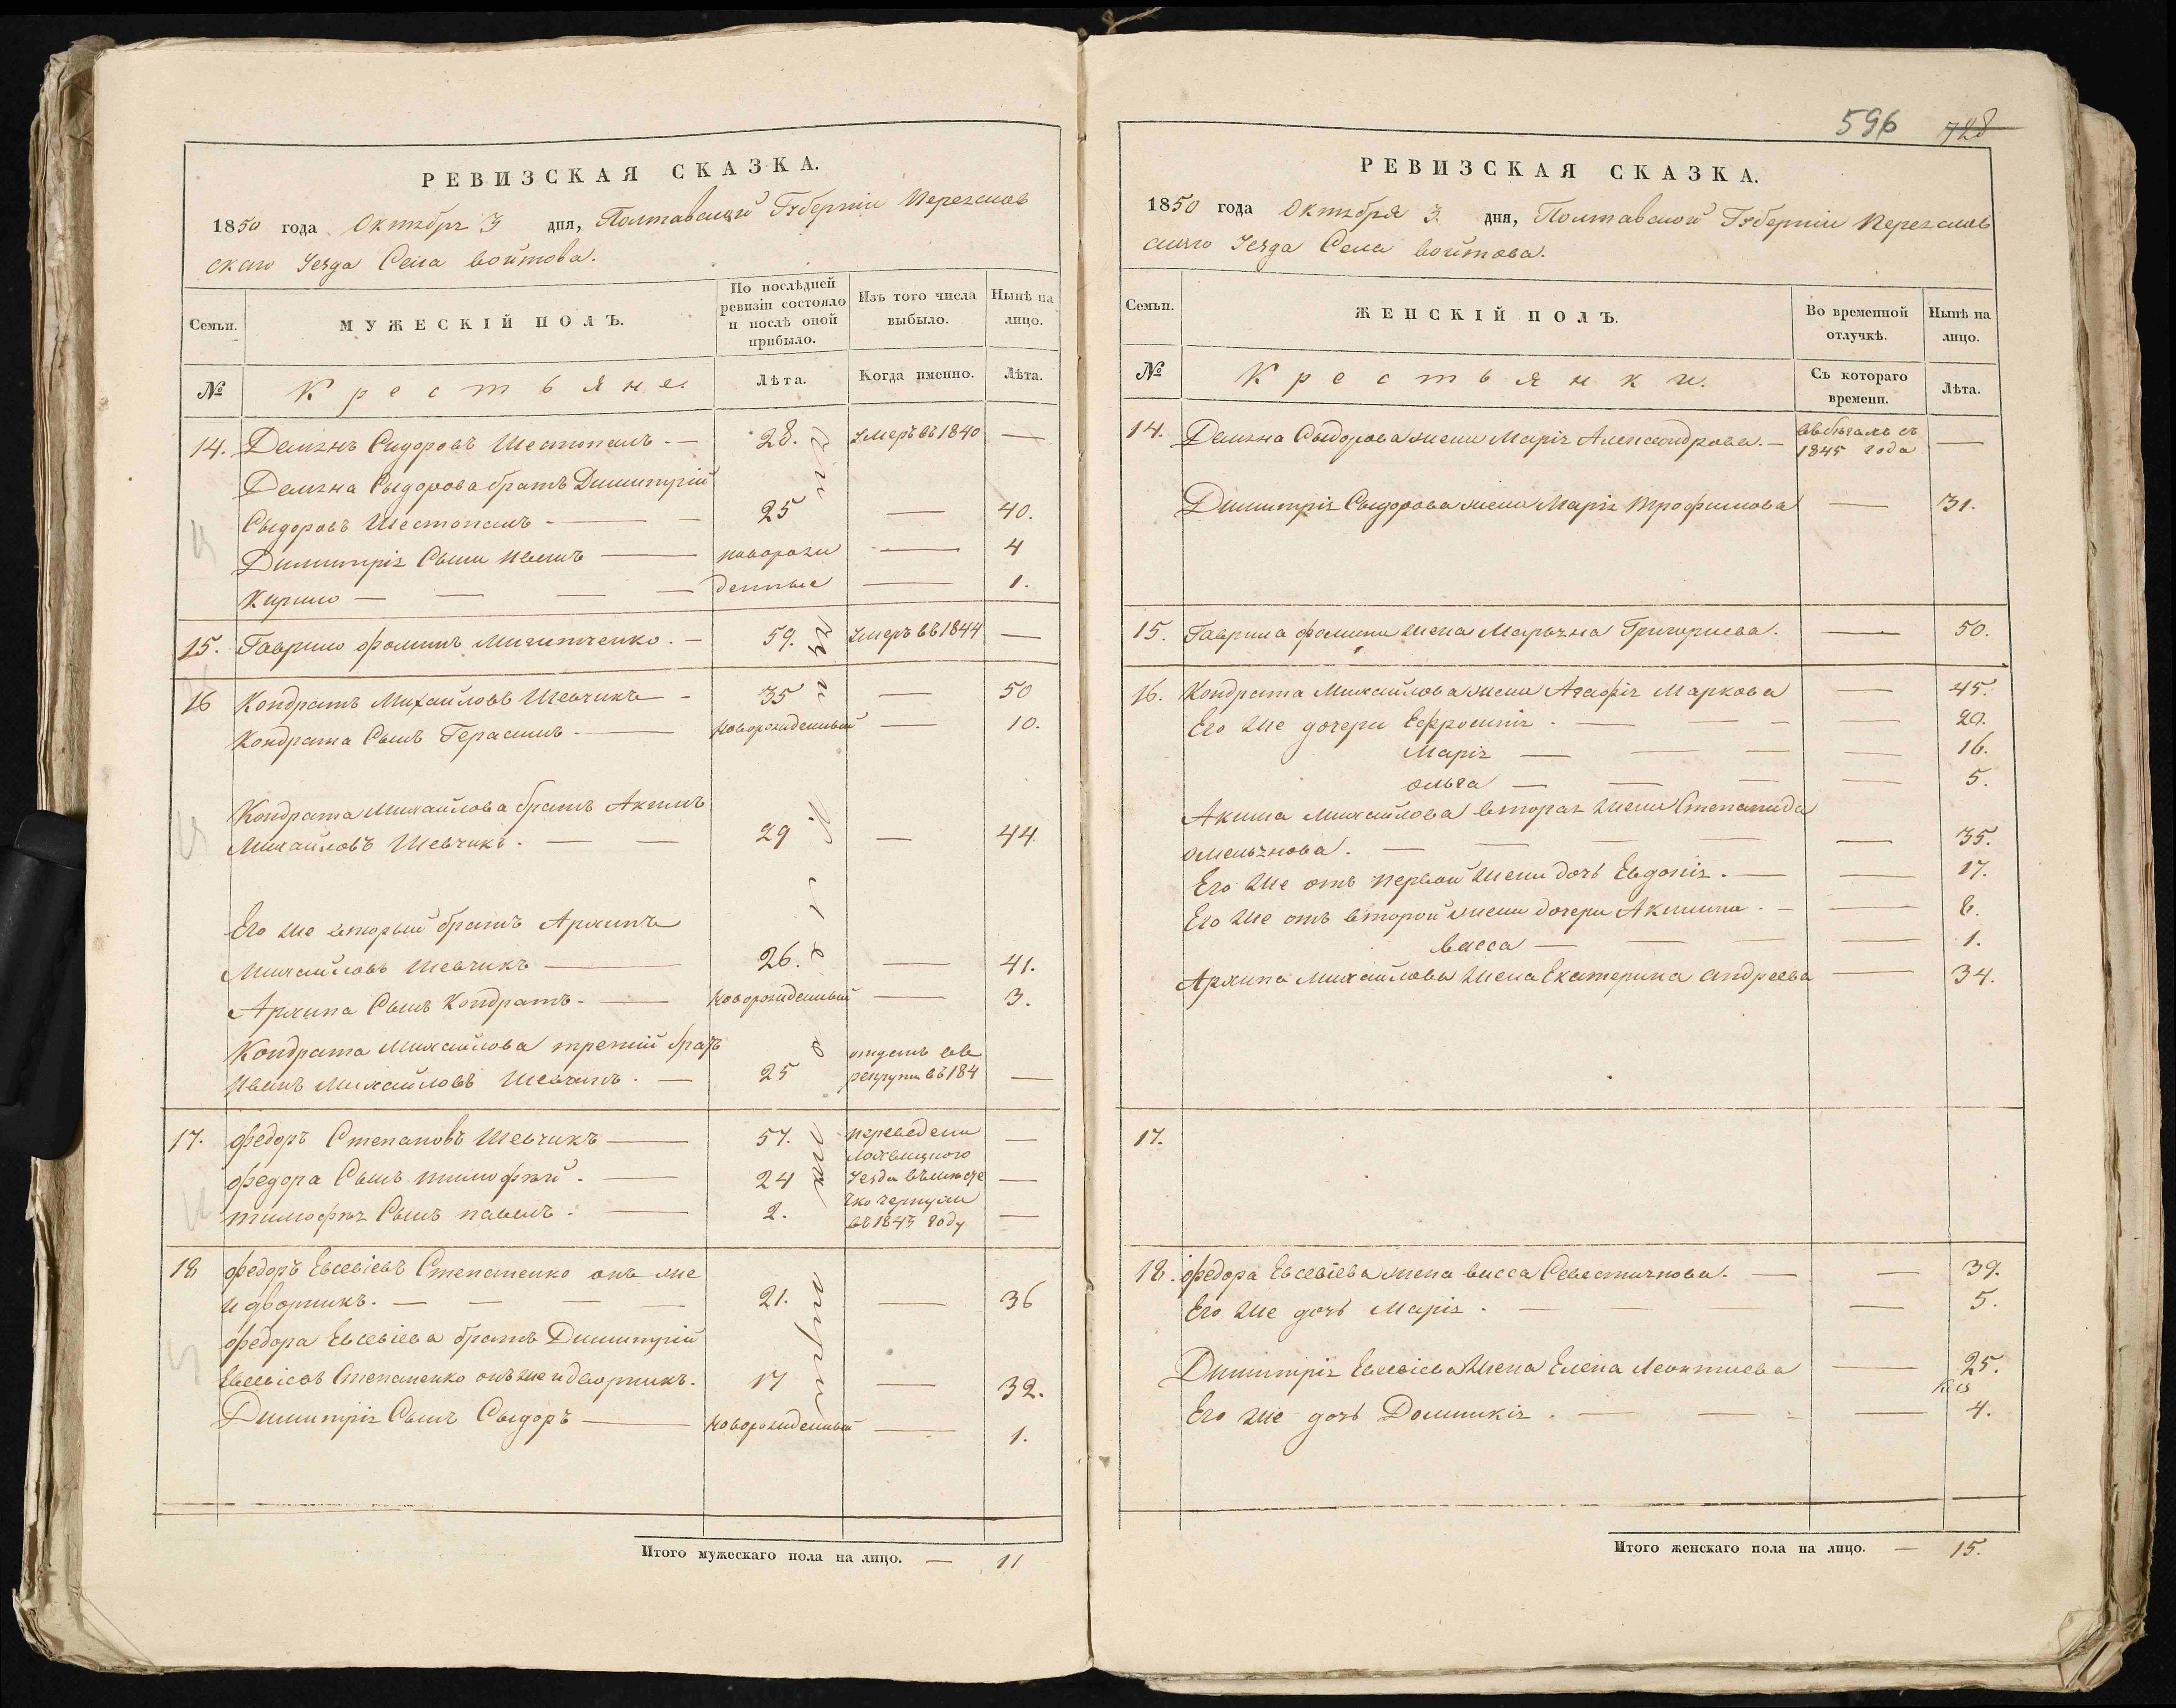 РЕВИЗСКАЯ СКАЗКА.
1850 года Октября 3 дня, Полтавской Губерніи Переяслов
скаго Уезда Села Войтова.
Семьи.
МУЖЕСКІЙ ПОЛЪ.
По послѣдней
ревизіи состояло
и послѣ оной
прибыло.
Изъ того числа
выбыло.
Нынѣ на
лицо.
№
Крестьяне.
Лѣта.
Когда именно.
Лѣта.
14. Демянъ Сидоровъ Шестопалъ. — 28. Умеръ въ 1840 —
Демяна Сыдорова братъ Димитрій
Сыдоровъ Шестопалъ — — 25 — 40.
Димитрія Сыны Иванъ — новорож — 4
Кирило — — — — денные — 1.
15. Гаврило Фоминъ — 59. Умеръ въ 1844 —
16 Кондратъ Михайловъ Шевчикъ — 35 — 50
Кондрата Сынъ Герасимъ — новорожденный — 10.
Кондрата Михайлова братъ Акимъ
Михайловъ Шевчикъ. — — 29 — 44.
Его же вторый братъ Архипъ
Михайловъ Шевчикъ — 26. — 41.
Архипа Сынъ Кондратъ — новорожденный — 3.
Кондрата Михайлова третій братъ
Иванъ Михайловъ Шевчикъ. — 25 отданъ въ
рекруты въ 184 —
17. Федоръ Степановъ Шевчикъ — 57. переведены —
Лохвицкого
Федора Сынъ Тимофѣй. — 24 Уезда въ —
Тимофѣя Сынъ Павелъ. — 2. —
въ 1843 году
18 Федоръ Евсевіевъ Степаненко онъ же
и дворникъ. — — — — 21. — 36
Федора Евсевіева братъ Димитрій
Евсевіевъ Степаненко онъ же и дворникъ. 17 — 32.
Димитрія Сынъ Сыдоръ — новорожденный — 1.
Итого мужескаго пола на лицо. — 11
596 728
РЕВИЗСКАЯ СКАЗКА.
1850 года Октября 3 дня, Полтавской Губерніи Переяслов
скаго Уезда Села Войтова.
Семьи.
ЖЕНСКІЙ ПОЛЪ.
Во временной
отлучкѣ.
Нынѣ на
лицо.
№
Крестьянки.
Съ котораго
времени.
Лѣта.
14. Демяна Сыдорова жена Марія Александрова. — въ бѣгахъ съ
1845 года —
Димитрія Сыдорова жена Марія Трофимова — 31.
15. Гаврила Фомина жена Марьяна Григориева. — 50.
16. Кондрата Михайлова жена Агафія Маркова — 45.
Его же дочери Ефросинія. — — — — 20.
Марія — — — — 16.
Ольга — — — — 5.
Акима Михайлова вторая жена Степанида
Омельянова. — — — — — 35.
Его же отъ первой жены дочь Евдокія. — — 17.
Его же отъ второй жены дочери Акилина. — — 6.
Васса — — — — 1.
Архипа Михайлова жена Екатерина Андреева — 34.
17.
18. Федора Евсевіева жена Васса Севастиянова. — — 39.
Его же дочь Марія. — — 5.
Димитрія Евсевіева жена Елена Леонтиева — 25.
Его же дочь Домникія. — — — — 4.
Итого женскаго пола на лицо. — 15.